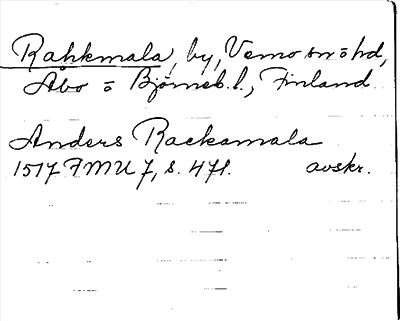 Rahkmala, by, Vemo sn o hd,
Åbo o Björneb. l., Finland.
Anders Rackamala
1517 FMU 7, s. 471. avskr.